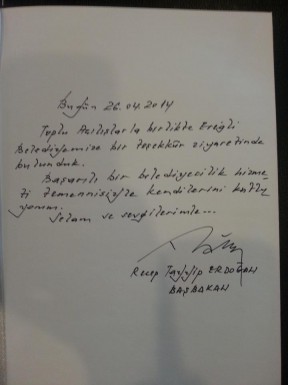 Bugün 26.04.2014
Toplu Açılışlarla birlikte Ereğli
Belediyemize bir teşekkür ziyaretinde
bulunduk.
Başarılı bir belediyecilik hizme-
ti temennisiyle kendilerini kutlu-
yorum.
Selam ve sevgilerimle...
Recep Tayyip ERDOĞAN
BAŞBAKAN